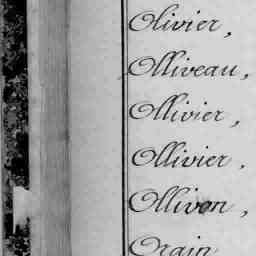 Olivier,
Olliveau,
Ollivier,
Ollivier,
Ollivon,
Orain